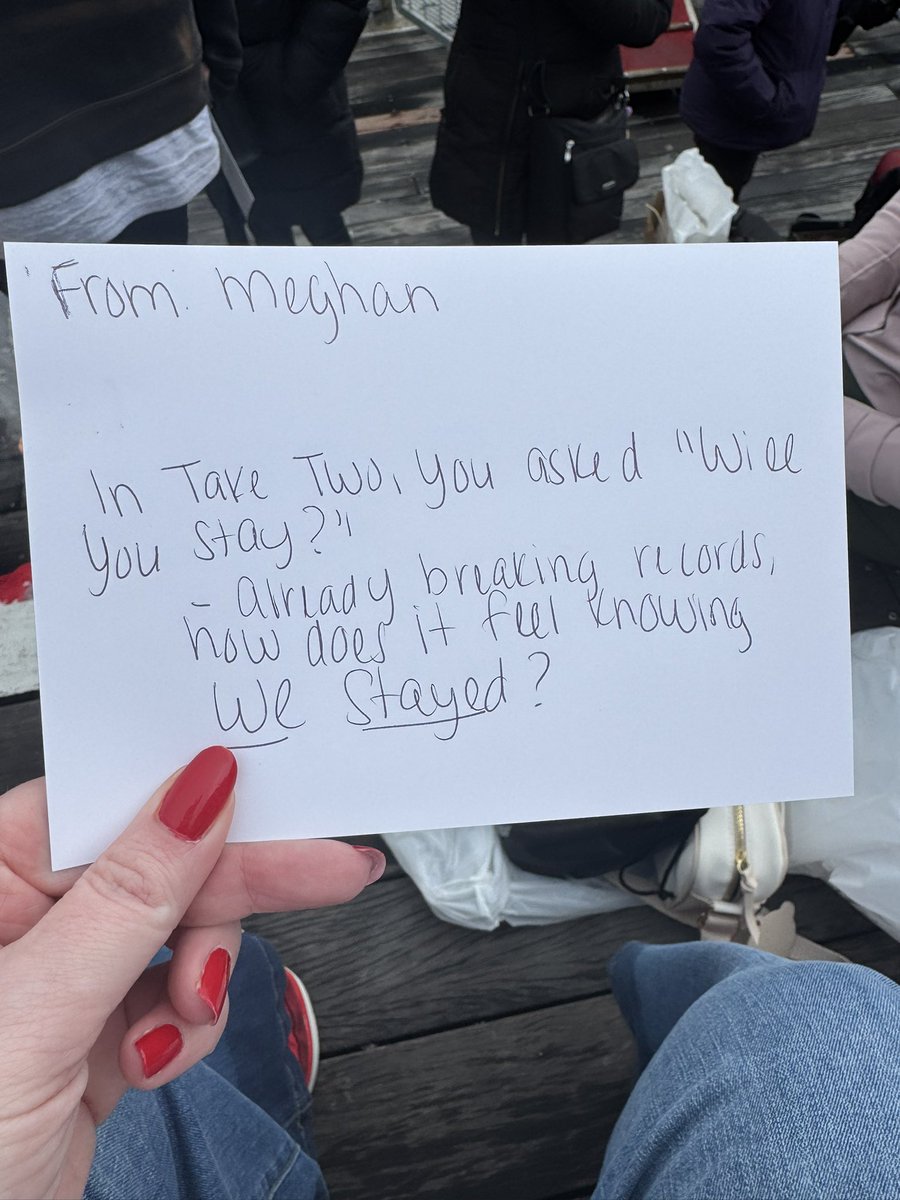 From: Meghan
In Take Two, you asked "Will
you stay?"
- Already breaking records,
how does it feel knowing
we stayed?